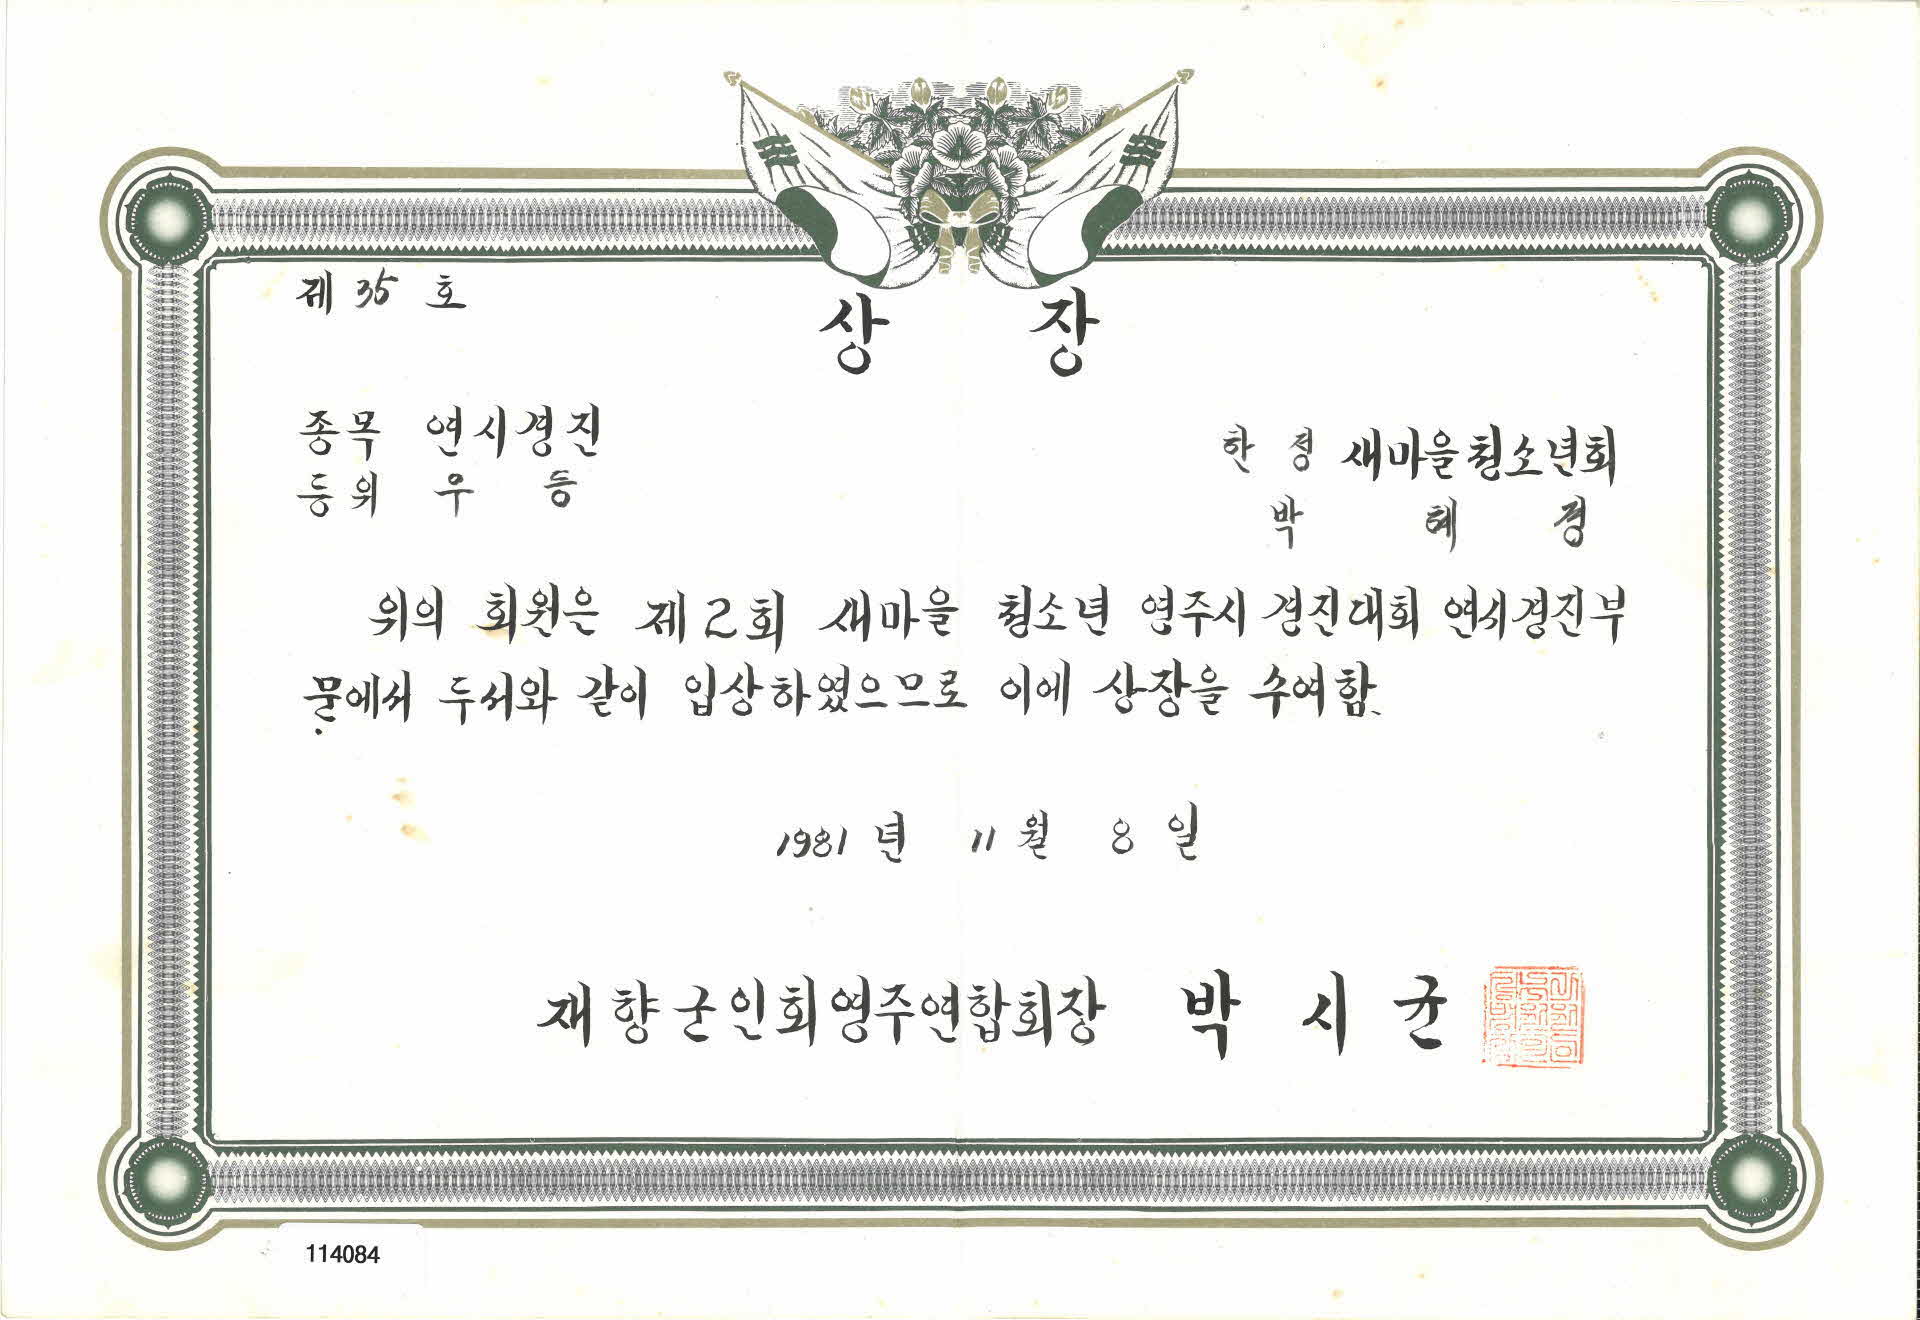 제 35 호
상 장
종목 연시경진
등위 우 등
한 정 새마을청소년회
박 혜 경
위의 회원은 제2회 새마을 청소년 영주시 경진대회 연시경진부
문에서 두서와 같이 입상하였으므로 이에 상장을 수여함.
1981 년 11 월 8 일
재향군인회영주연합회장 박 시 균
114084